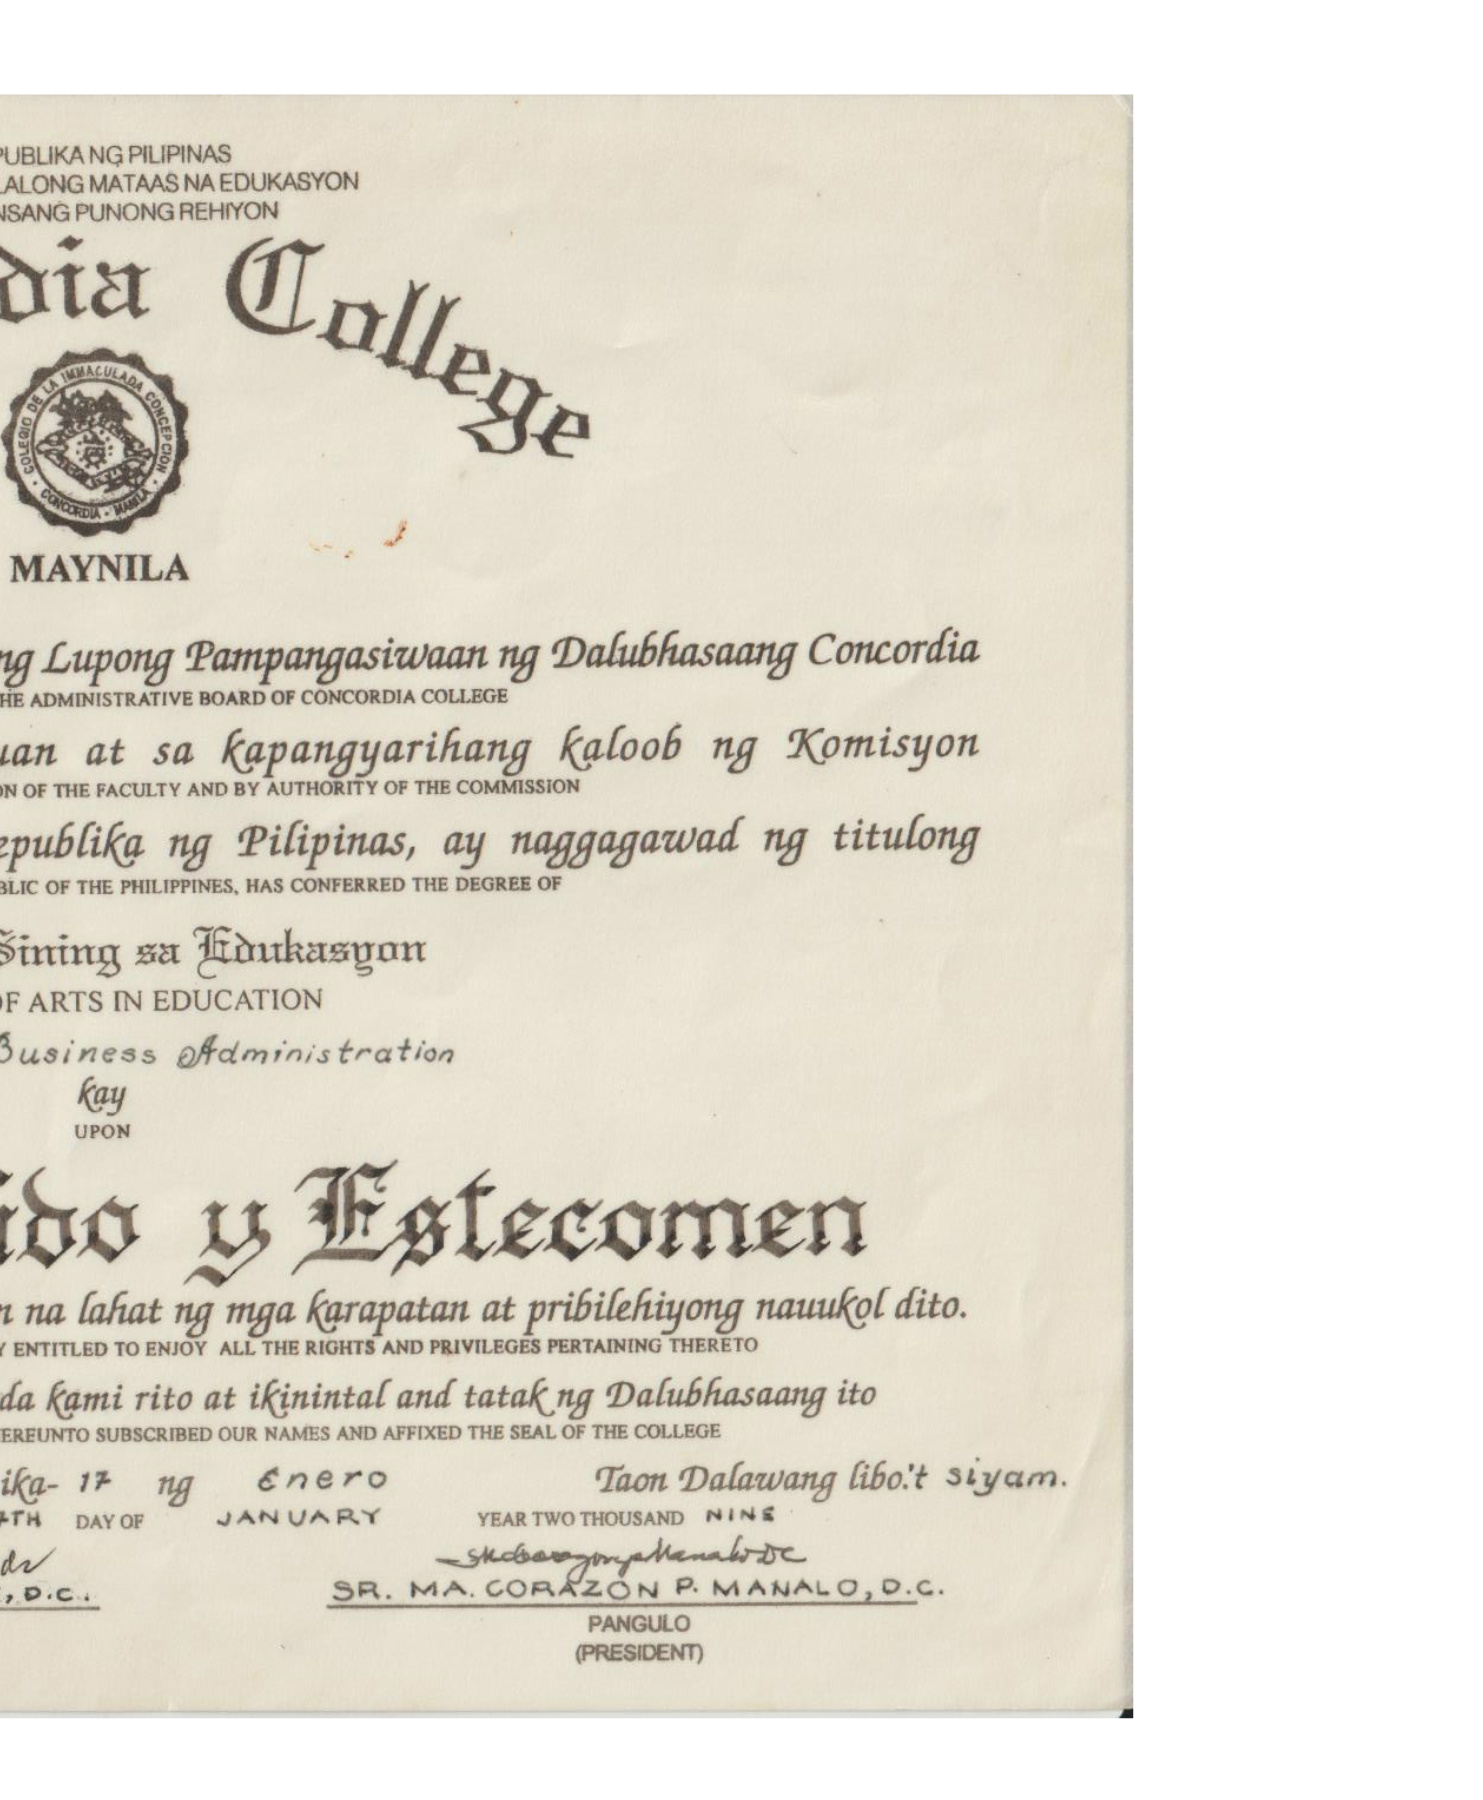 PUBLIKA NG PILIPINAS
LALONG MATAAS NA EDUKASYON
NSANG PUNONG REHIYON
dia College
COLEGIO DE LA IMMACULADA CONCEPCION
CONCORDIA - MANILA
MAYNILA
ng Lupong Pampangasiwaan ng Dalubhasaang Concordia
HE ADMINISTRATIVE BOARD OF CONCORDIA COLLEGE
uan at sa kapangyarihang kaloob ng Komisyon
ON OF THE FACULTY AND BY AUTHORITY OF THE COMMISSION
epublika ng Pilipinas, ay naggagawad ng titulong
BLIC OF THE PHILIPPINES, HAS CONFERRED THE DEGREE OF
Sining sa Edukasyon
OF ARTS IN EDUCATION
Business Administration
kay
UPON
ido y Estecomen
n na lahat ng mga karapatan at pribilehiyong nauukol dito.
Y ENTITLED TO ENJOY ALL THE RIGHTS AND PRIVILEGES PERTAINING THERETO
da kami rito at ikinintal and tatak ng Dalubhasaang ito
EREUNTO SUBSCRIBED OUR NAMES AND AFFIXED THE SEAL OF THE COLLEGE
ika- 17 ng Enero Taon Dalawang libo't siyam.
7TH DAY OF JANUARY YEAR TWO THOUSAND NINE
, D.C. SR. MA. CORAZON P. MANALO, D.C.
PANGULO
(PRESIDENT)